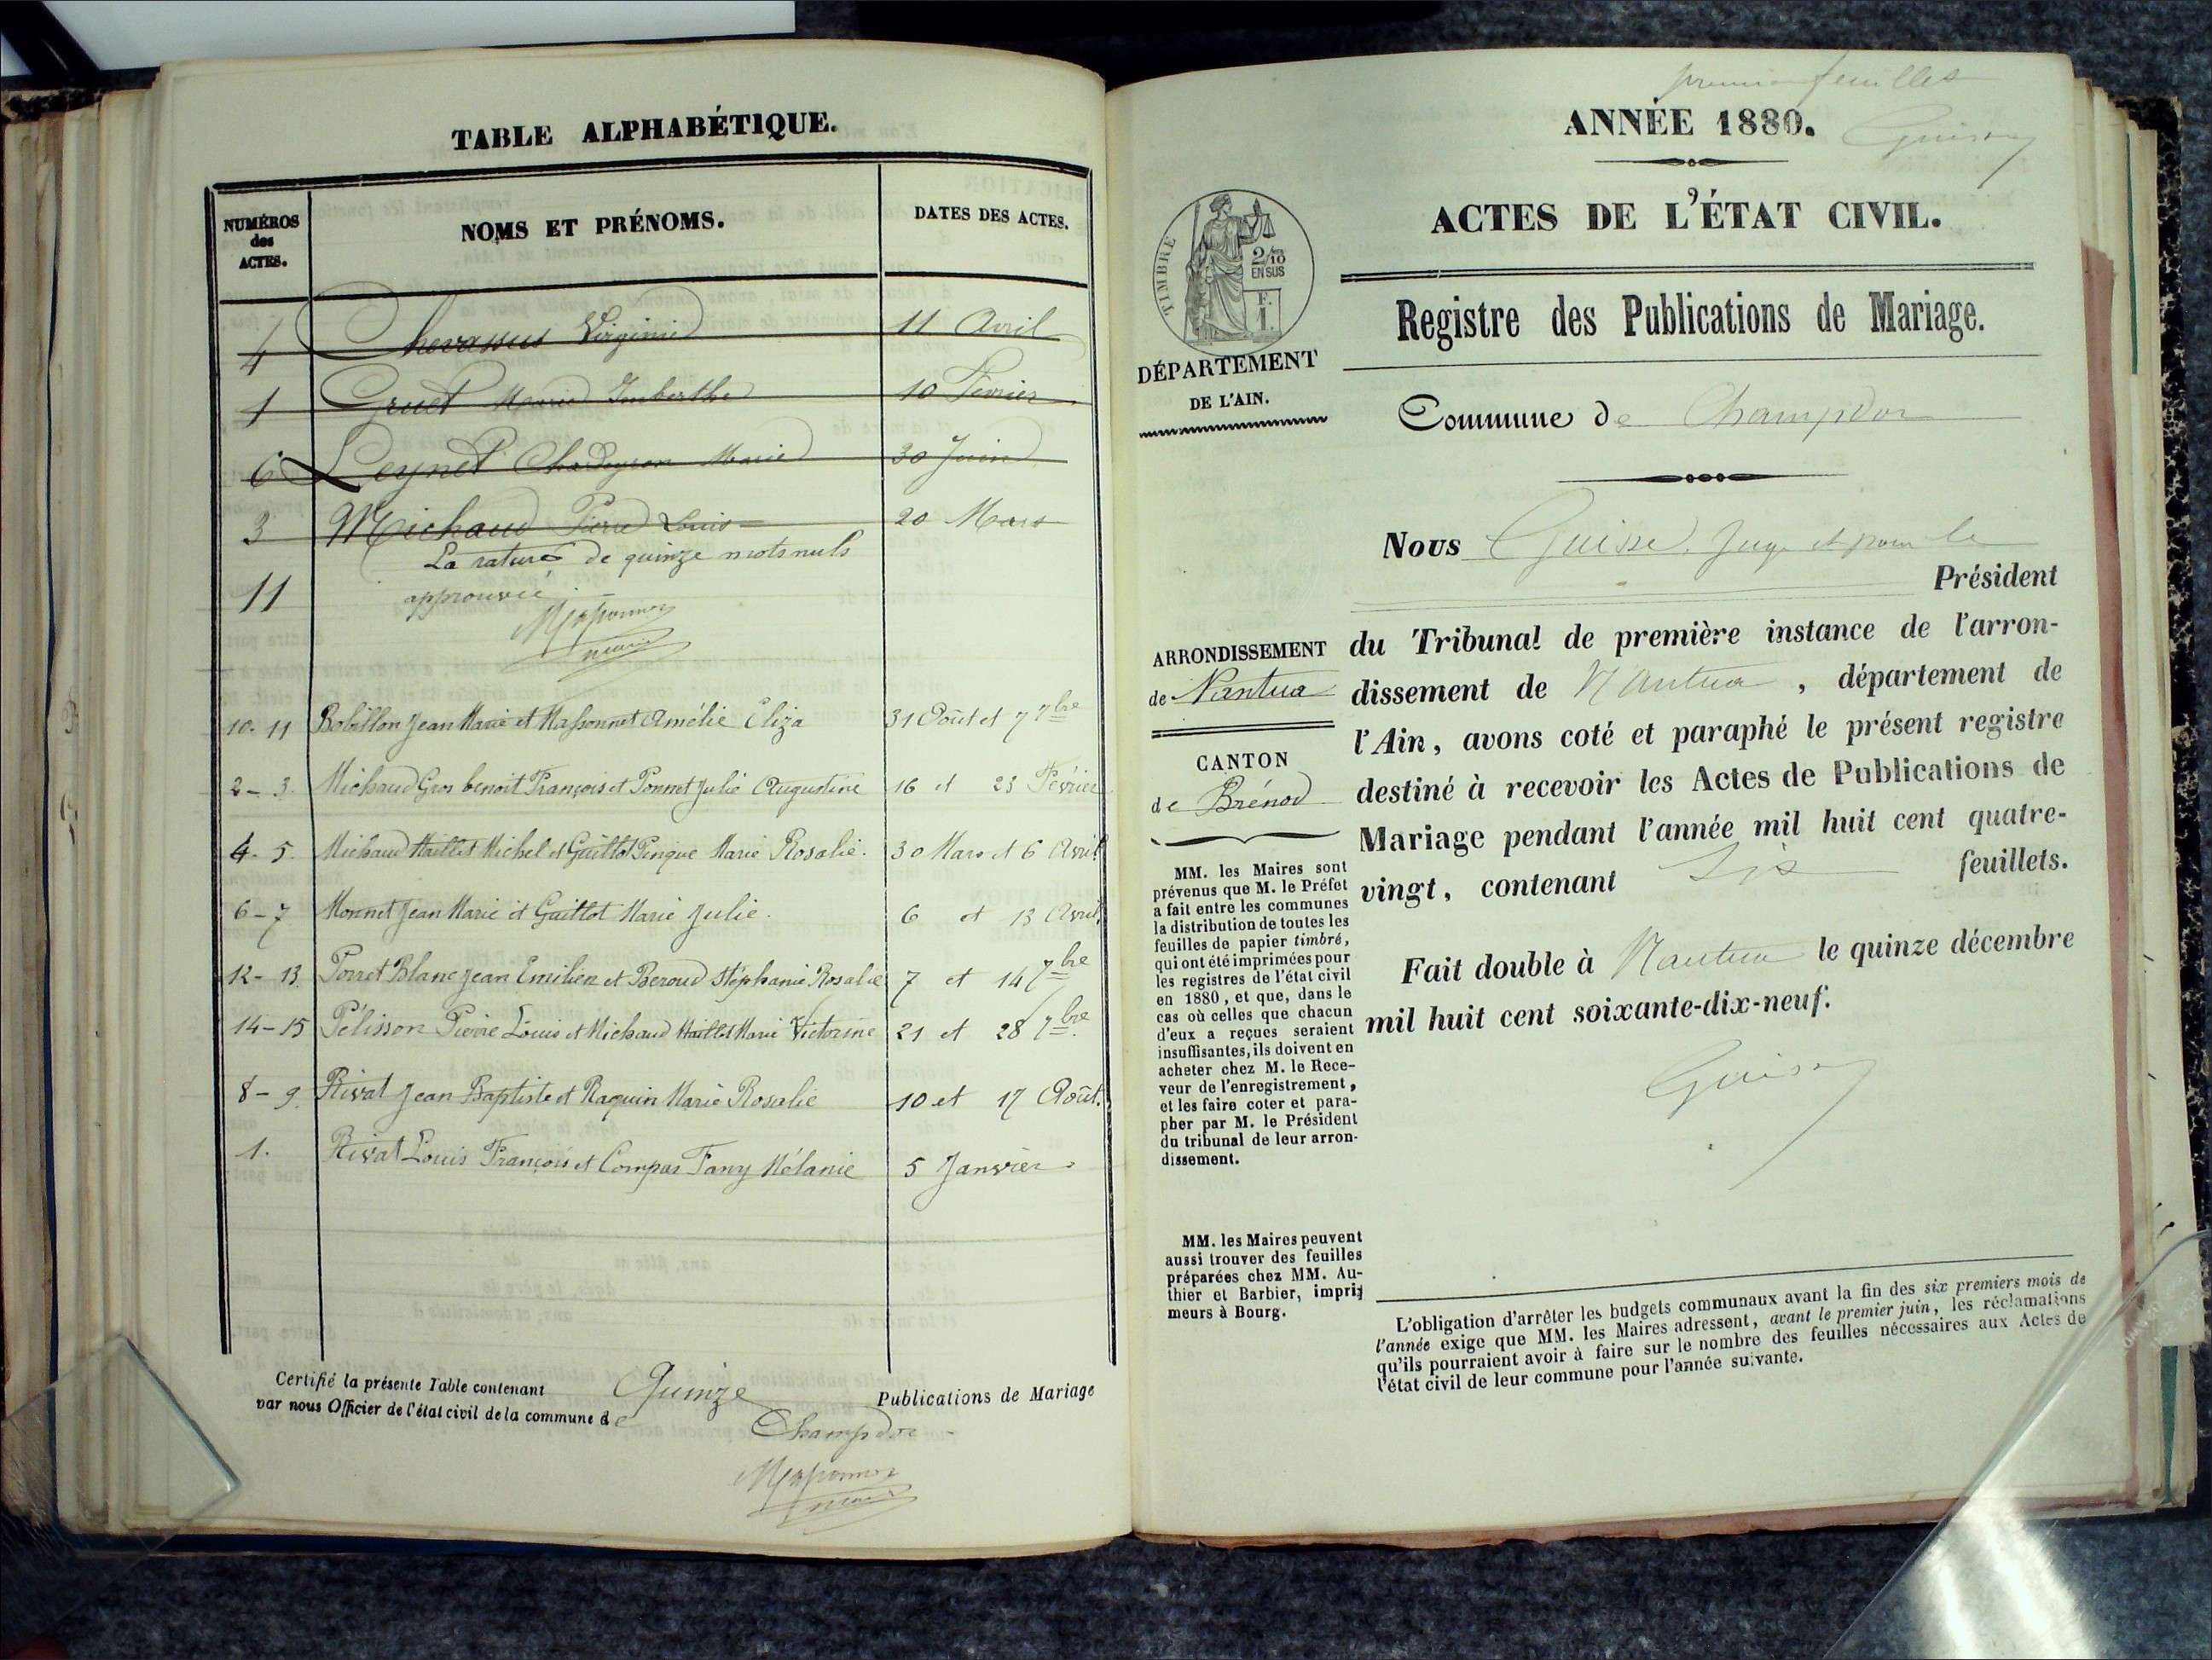 TABLE ALPHABÉTIQUE.
NUMÉROS
des
ACTES.
NOMS ET PRÉNOMS.
DATES DES ACTES.
4 Chevassus Virginie 11 Avril
1 Gruet Marie Imberthe 10 Février
6 Leynet Marie 30 Juin
3 Michaud Pierre Louis 20 Mars
La rature de quinze mots nuls
11 approuvée
10-11 Bobillon Jean Marie et Massonnet Amélie Eliza 31 Août et 7 7bre
2-3. Michaud Gros benoit François et Ponnet Julie Augustine 16 et 23 Février
4-5. Michaud Maillet Michel et Guillot Pingue Marie Rosalie. 30 Mars et 6 Avril
6-7 Monnet Jean Marie et Guillot Marie Julie. 6 et 13 Avril.
12-13. Porret Blanc Jean Emilien et Beroud Stéphanie Rosalie 7 et 14 7bre
14-15 Pélisson Pierre Louis et Michaud Maillet Marie Victorine 21 et 28 7bre.
8-9. Rivat Jean Baptiste et Raquin Marie Rosalie 10 et 17 Août.
1. Rivat Louis François et Compas Fany Mélanie 5 Janvier
Certifié la présente Table contenant Quinze Publications de Mariage
par nous Officier de l'état civil de la commune de Champdor
premier feuillet
ANNÉE 1880.
Guisse
ACTES DE L'ÉTAT CIVIL.
TIMBRE
2/10
EN SUS
F.
1.
Registre des Publications de Mariage.
DÉPARTEMENT
DE L'AIN.
Commune de Champdor
Nous Guisse, Juge et pour le
Président
du Tribunal de première instance de l'arron-
dissement de Nantua, département de
l'Ain, avons coté et paraphé le présent registre
destiné à recevoir les Actes de Publications de
Mariage pendant l'année mil huit cent quatre-
vingt, contenant Six feuillets.
Fait double à Nantua le quinze décembre
mil huit cent soixante-dix-neuf.
Guisse
ARRONDISSEMENT
de Nantua
CANTON
de Brénod
MM. les Maires sont
prévenus que M. le Préfet
a fait entre les communes
la distribution de toutes les
feuilles de papier timbré,
qui ont été imprimées pour
les registres de l'état civil
en 1880, et que, dans le
cas où celles que chacun
d'eux a reçues seraient
insuffisantes, ils doivent en
acheter chez M. le Rece-
veur de l'enregistrement,
et les faire coter et para-
pher par M. le Président
du tribunal de leur arron-
dissement.
MM. les Maires peuvent
aussi trouver des feuilles
préparées chez MM. Au-
thier et Barbier, impri-
meurs à Bourg.
L'obligation d'arrêter les budgets communaux avant la fin des six premiers mois de
l'année exige que MM. les Maires adressent, avant le premier juin, les réclamations
qu'ils pourraient avoir à faire sur le nombre des feuilles nécessaires aux Actes de
l'état civil de leur commune pour l'année suivante.